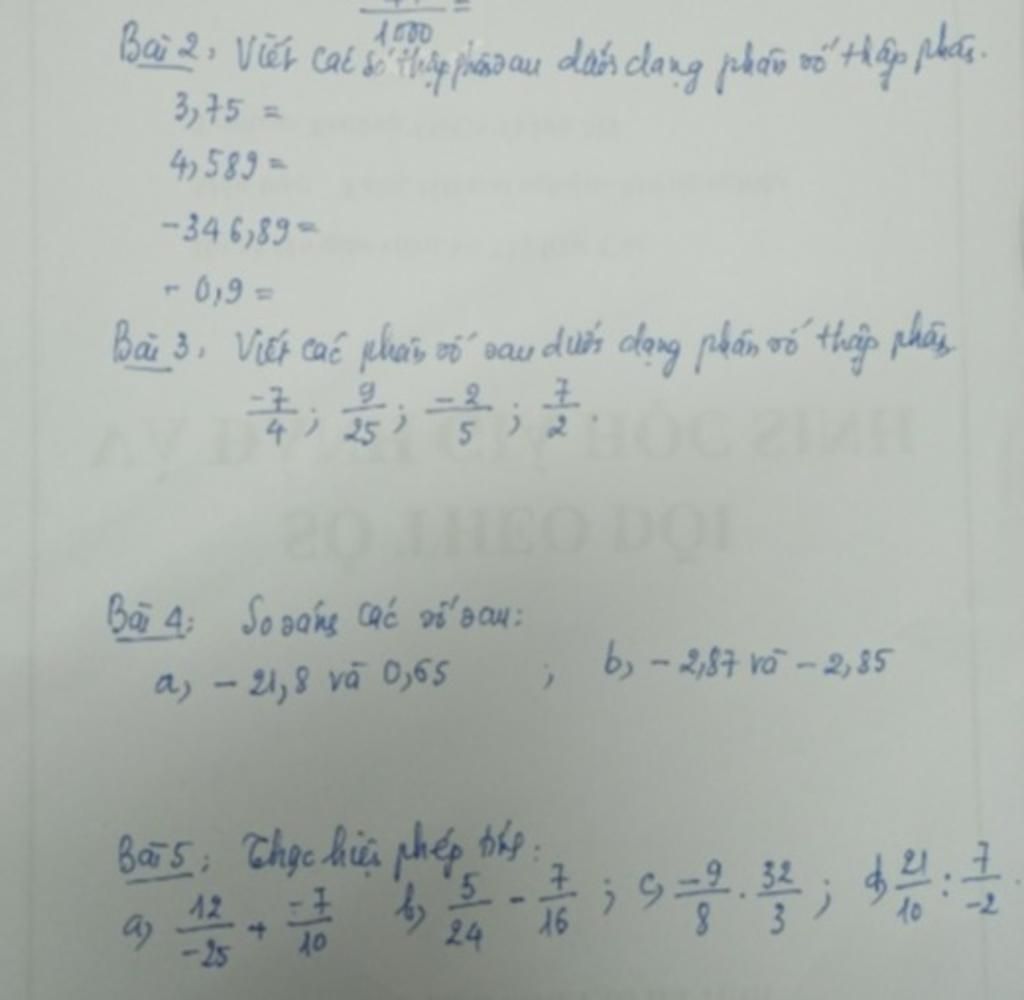 1000 =
Bài 2: Viết các số thập phân sau dưới dạng phân số thập phân.
3,75 =
4,589 =
-346,89 =
- 0,9 =
Bài 3: Viết các phân số sau dưới dạng phân số thập phân
-7/4 ; 9/25 ; -2/5 ; 7/2 .
Bài 4: So sánh các số sau:
a, - 21,8 và 0,65 ; b, - 2,87 và - 2,85
Bài 5: Thực hiện phép tính:
a) 12/-25 + -7/10 b, 5/24 - 7/16 ; c, -9/8 . 32/3 ; d, 21/10 : 7/-2 .